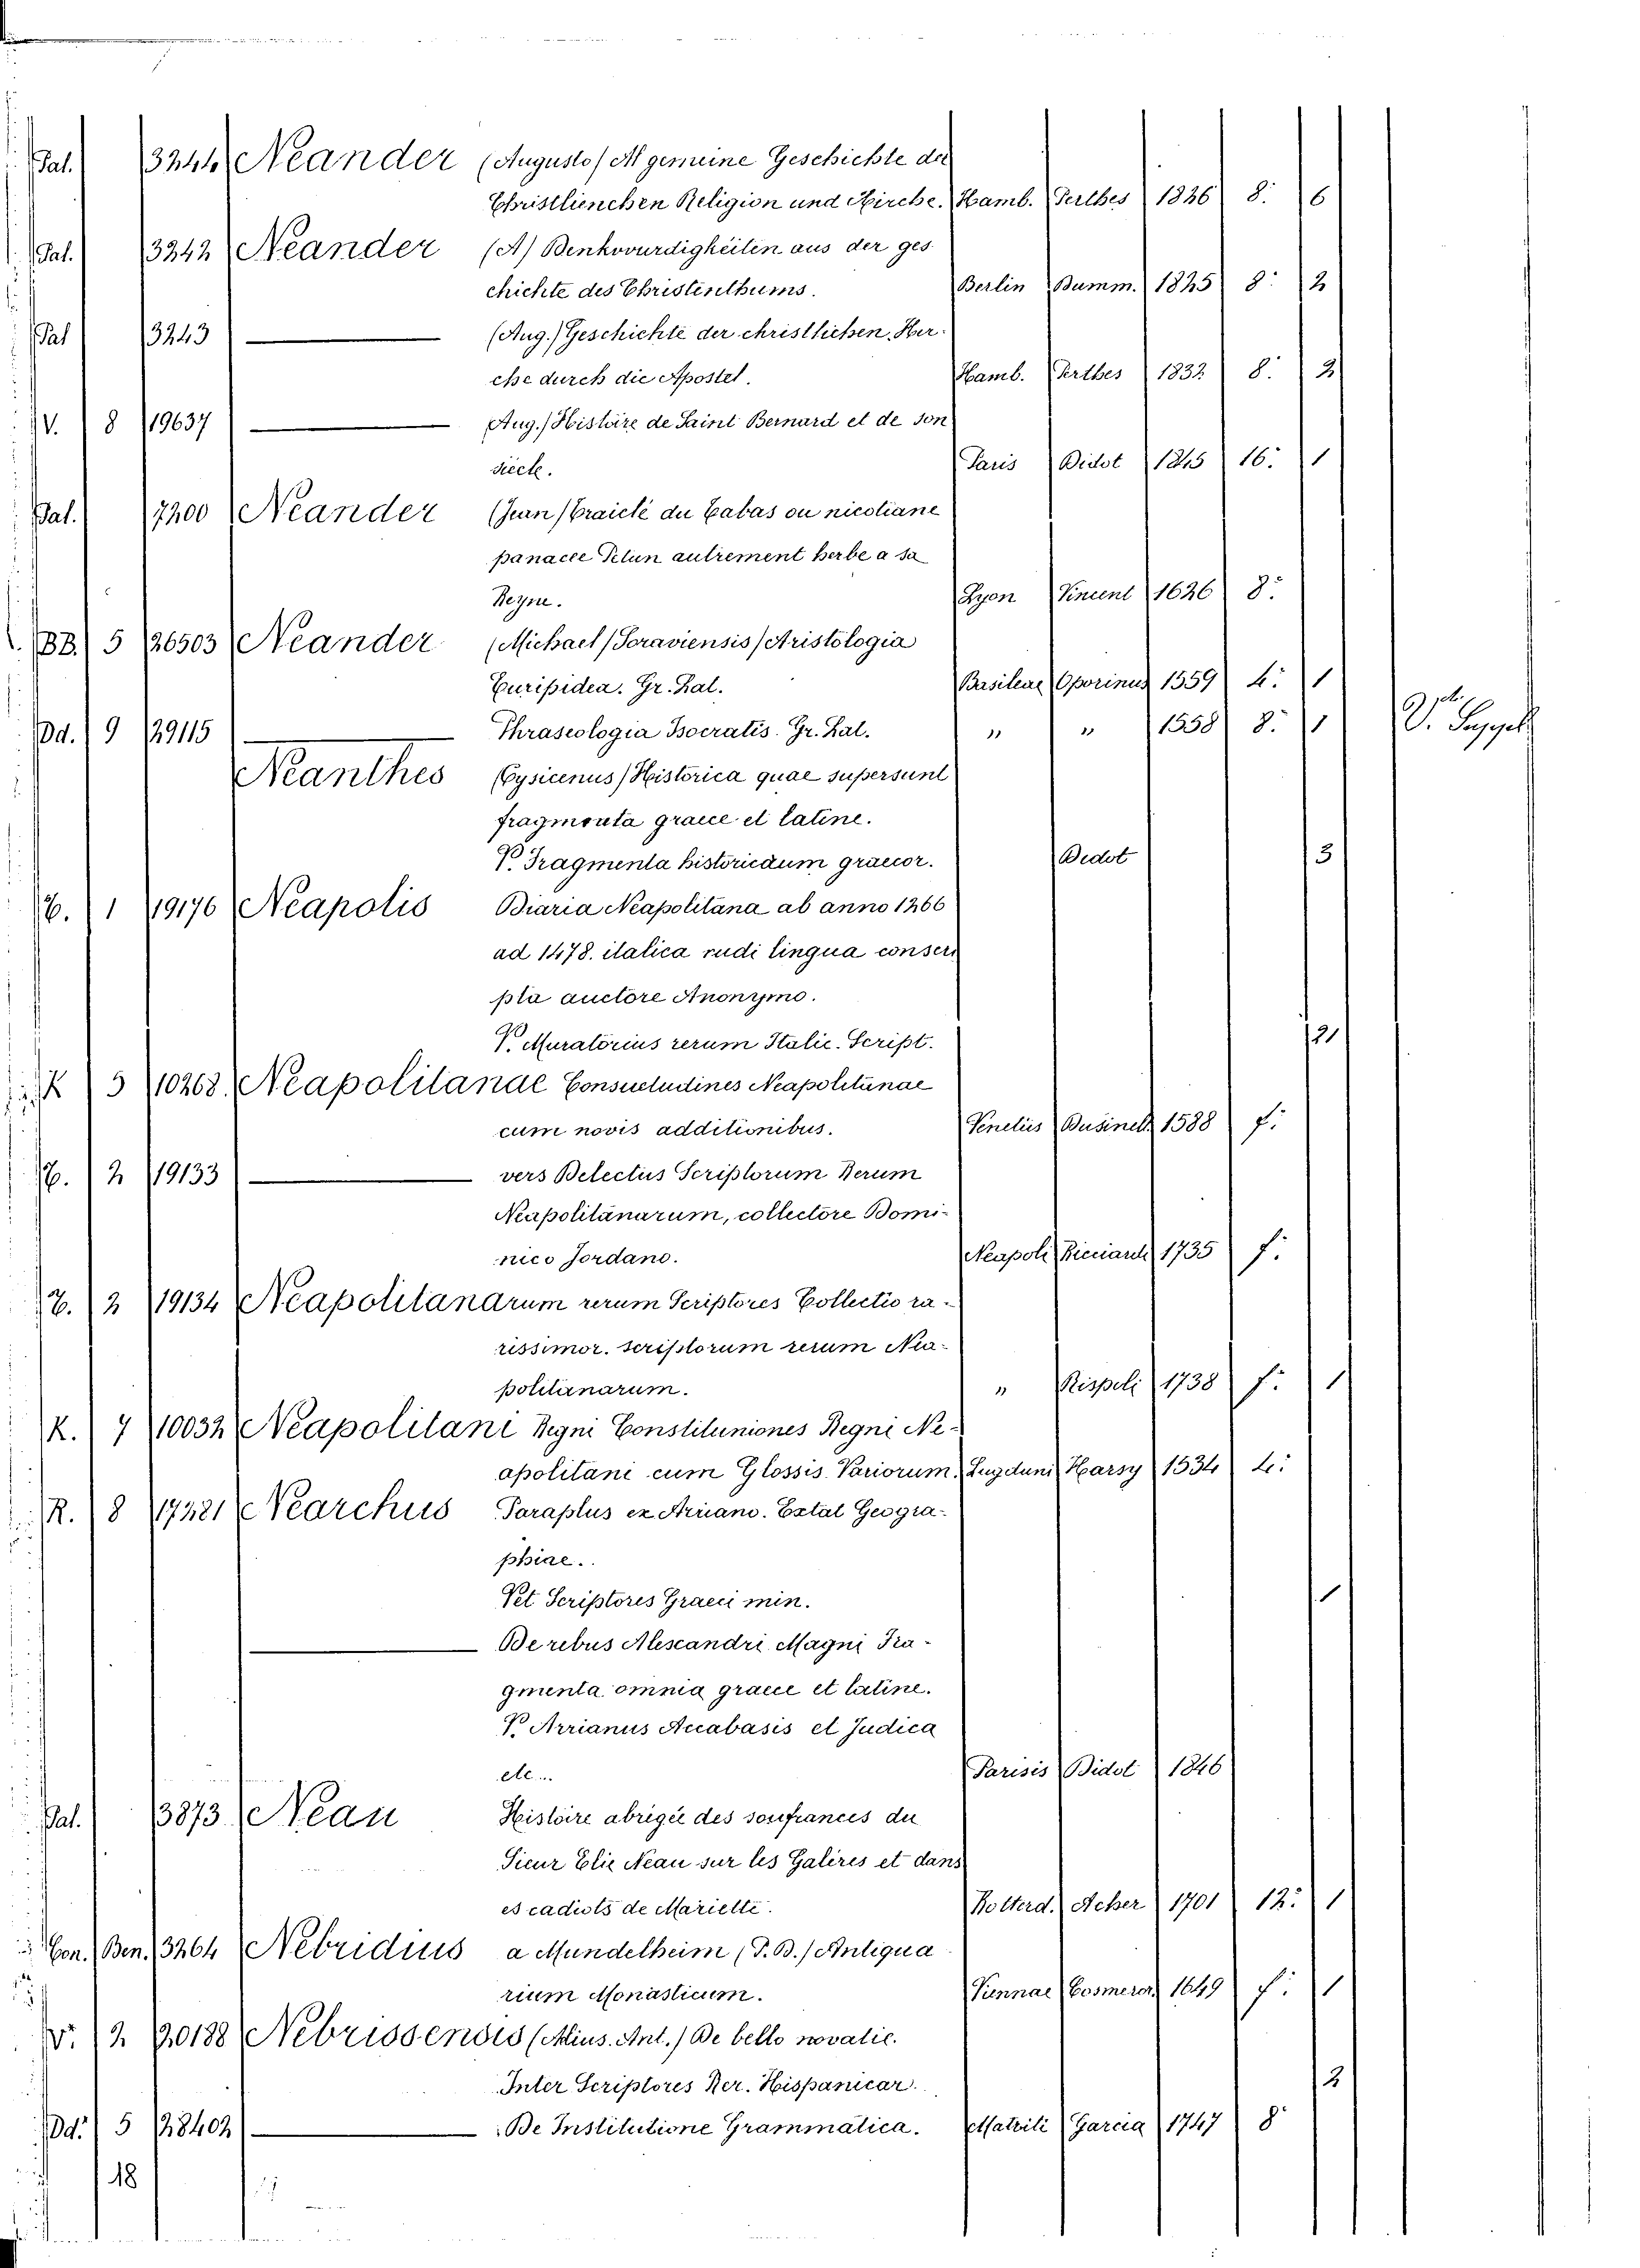 Pal. 3244 Neander (Augusto) Al gemeine Geschichte der
Christlienchen Religion und Kirche. Hamb. Perthes 1826 8. 6
Pal. 3242 Neander (A) Benkwurdigkeiten aus der ges
chichte des Christenthums. Berlin Dumm. 1825 8. 2
Pal 3243 (Aug.) Geschichte der christlichen Her
che durch die Apostel. Hamb. Perthes 1832 8. 2
V. 8 19637 Aug.) Histoire de Saint Bernard et de son
siecle. Paris Didot 1845 16. 1
Pal. 7200 Neander (Jean) Traicté du Tabas ou nicotiane
panacee Petun autrement herbe a sa
Reyne. Lyon Vincent 1626 8.
BB. 5 26503 Neander (Michael) Soraviensis) Aristologia
Euripidea. Gr. Lat. Basileae Oporinus 1559 4. 1
Dd. 9 29115 Phraseologia Isocratis. Gr. Lat. " " 1558 8. 1
Neanthes Cysicenus) Historica quae supersunt
fragmenta graece et latine.
V. Fragmenta historicum graecor. Dedot 3
T. 1 19176 Neapolis Diaria Neapolitana ab anno 1266
ad 1478. italica rudi lingua conscri
pta auctore Anonymo.
V. Muratorius rerum Italic. Script. 21
K 5 10268. Neapolitanae Consuetudines Neapolitanae
cum novis additionibus. Venetiis Businell 1588 f.
T. 2 19133 vers Delectus Scriptorum Rerum
Neapolitanarum, collectore Domi-
nico Jordano. Neapoli Ricciardi 1735 f.
T. 2 19134 Neapolitanarum rerum Scriptores Collectio ra-
rissimor. scriptorum rerum Nea-
politanarum. " Rispoli 1738 f. 1
K. 7 10032 Neapolitani Regni Constituniones Regni Ne-
apolitani cum Glossis Variorum. Lugduni Harsy 1534 4.
R. 8 17221 Nearchus Paraplus ex Arriano. Extat Geogra-
phiae.
Vet Scriptores Graeci min. 1
De rebus Alexandri Magni Fra-
gmenta omnia graece et latine.
V. Arrianus Anabasis et Judica
etc... Parisis Didot 1846
Pal. 3873 Neau Histoire abrigée des soufrances du
Sieur Elie Neau sur les Galéres et dans
es cadiots de Marielle. Rotterd. Acher 1701 12. 1
Con. Ben. 3264 Nebridius a Mundelheim (P. B.) Antiqua
rium Monasticum. Viennae Cosmeror. 1649 f. 1
V. 2 20188 Nebrissensis (Alius. Ant.) De bello novalic.
Inter Scriptores Rer. Hispanicar. 2
Dd. 5 28402 De Institutione Grammatica. Matriti Garcia 1747 8
18